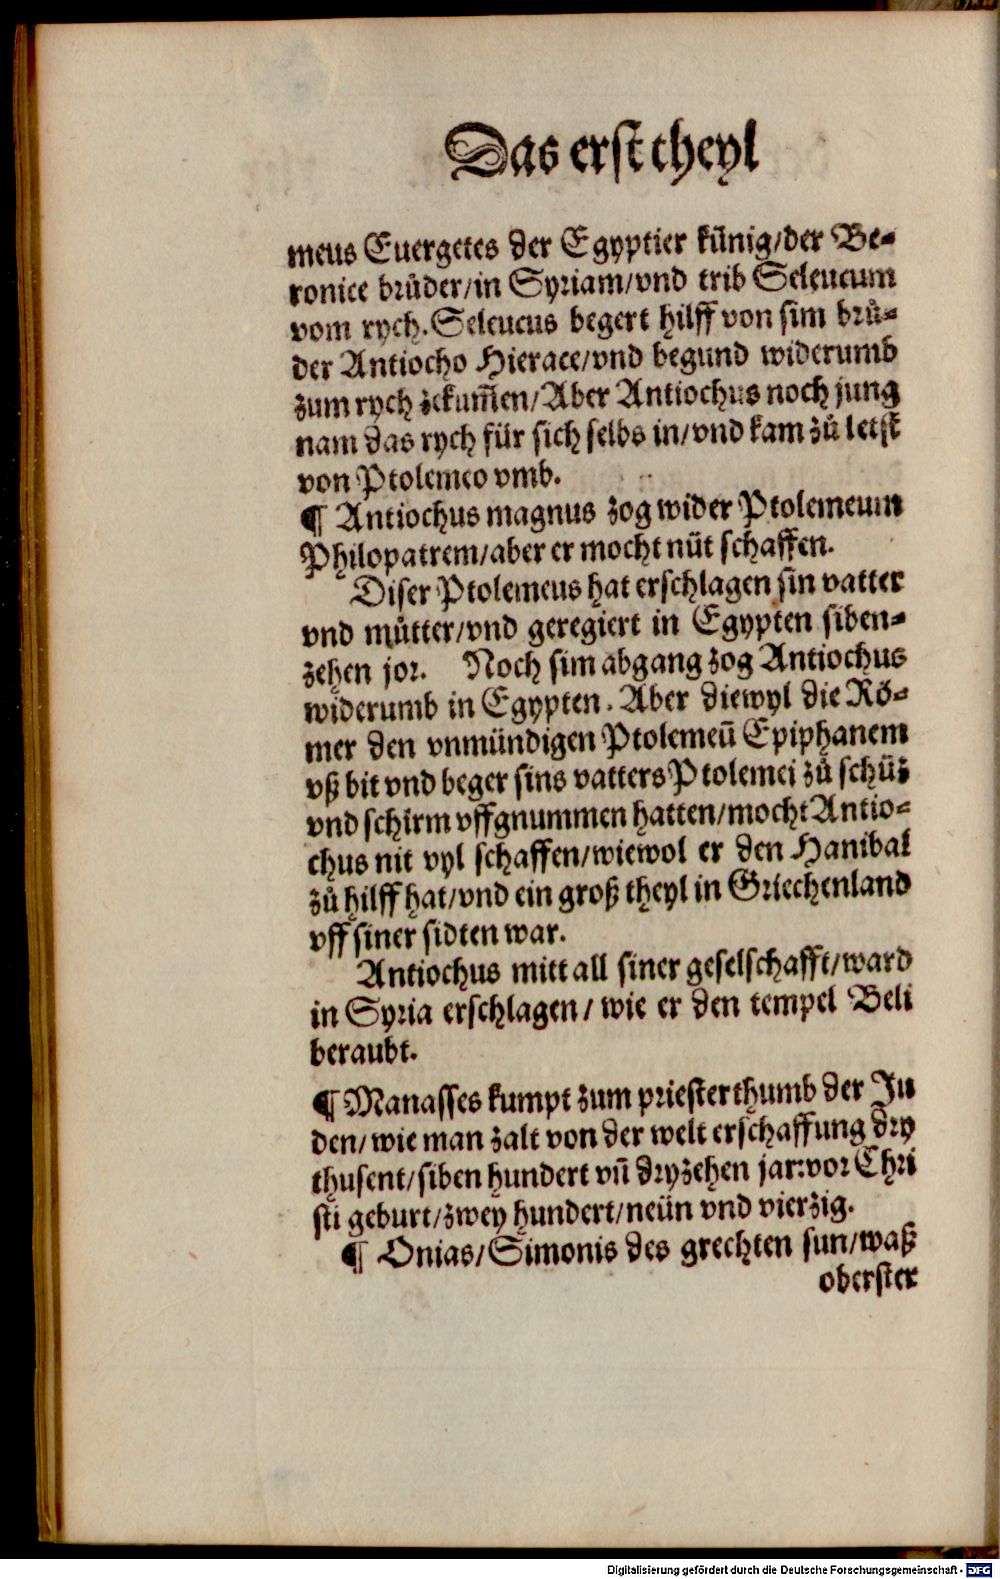 Das erst theyl
meus Euergetes der Egyptier künig/der Be⸗
ronice brůder/in Syriam/vnd trib Seleucum
vom rych. Seleucus begert hilff von sim brů⸗
der Antiocho Hierace/vnd begund widerumb
zum rych zekum̃en/Aber Antiochus noch jung
nam das rych für sich selbs in/vnd kam zů letst
von Ptolemeo vmb.
¶ Antiochus magnus zog wider Ptolemeum
Philopatrem/aber er mocht nüt schaffen.
Diser Ptolemeus hat erschlagen sin vatter
vnd můtter/vnd geregiert in Egypten siben⸗
zehen jor. Noch sim abgang zog Antiochus
widerumb in Egypten. Aber diewyl die Rö⸗
mer den vnmündigen Ptolemeū Epiphanem
vß bit vnd beger sins vatters Ptolemei zů schüz
vnd schirm vffgnummen hatten/mocht Antio⸗
chus nit vyl schaffen/wiewol er den Hanibal
zů hilff hat/vnd ein groß theyl in Griechenland
vff siner sidten war.
Antiochus mitt all siner geselschafft/ward
in Syria erschlagen/ wie er den tempel Beli
beraubt.
¶ Manasses kumpt zum priesterthumb der Ju
den/wie man zalt von der welt erschaffung dry
thusent/siben hundert vn̄ dryzehen jar:vor Chri
sti geburt/zwey hundert/neün vnd vierzig.
¶ Onias/Simonis des grechten sun/waß
oberster
Digitalisierung gefördert durch die Deutsche Forschungsgemeinschaft - DFG